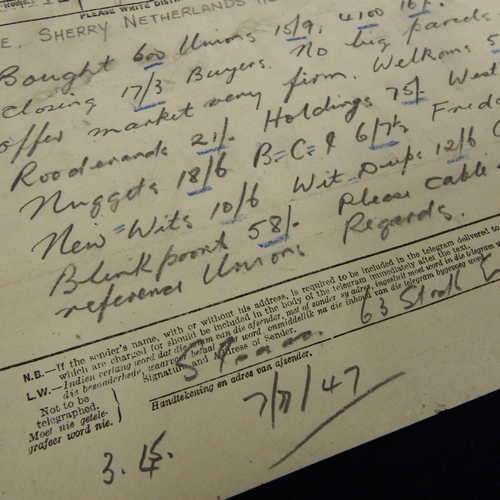 PLEASE WRITE DISTI
E. SHERRY NETHERLANDS
Bought 600 Unions 15/9, 4100 16/-
closing 17/3 Buyers. No big parcels
offer market very firm. Welkoms 5
Rooderands 21/- Holdings 75/- West
Nuggets 18/6 B=C=& 6/7½ Fredd
New=Wits 10/6 Wit=Deeps 12/6
Blinkpoort 58/- Please cable
reference Unions Regards.
N.B.—If the sender's name, with or without his address, is required to be included in the telegram delivered to
which are charged for should be included in the body of the telegram immediately after the text.
L.W.—Indien verlang word dat die naam van die afsender, met of sonder sy adres, ingesluit moet word in die telegram
die besonderhede, waarvoor betaal moet word, onmiddellik na die inhoud van die telegram bygevoeg word.
Signature and Address of Sender.
63 Stock E
Not to be
telegraphed.
Moet nie getele-
grafeer word nie.
Handtekening en adres van afsender.
3. LF.